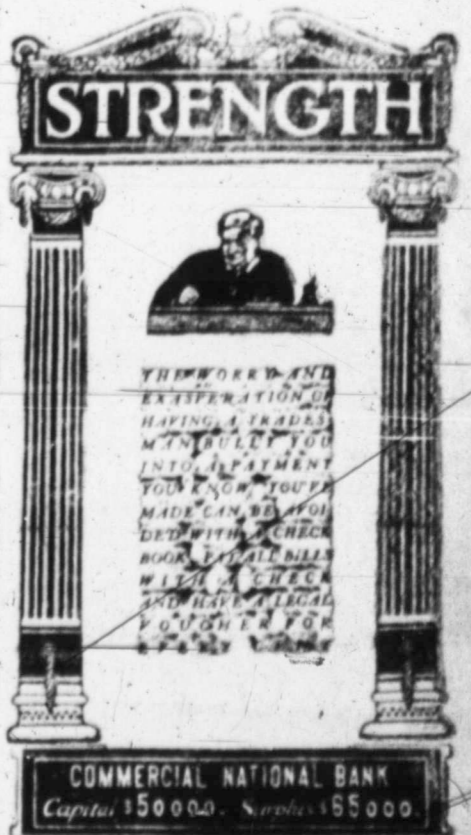 STRENGTH
THE WORRY AND
EXASPERATION OF
HAVING A TRADES
MAN BULLY YOU
INTO A PAYMENT
YOU KNOW YOU'VE
MADE CAN BE AVOI
DED WITH A CHECK
BOOK PAY ALL BILLS
WITH A CHECK
AND HAVE A LEGAL
VOUCHER FOR
EVERY
COMMERCIAL NATIONAL BANK
Capital $50000. Surplus $65000.